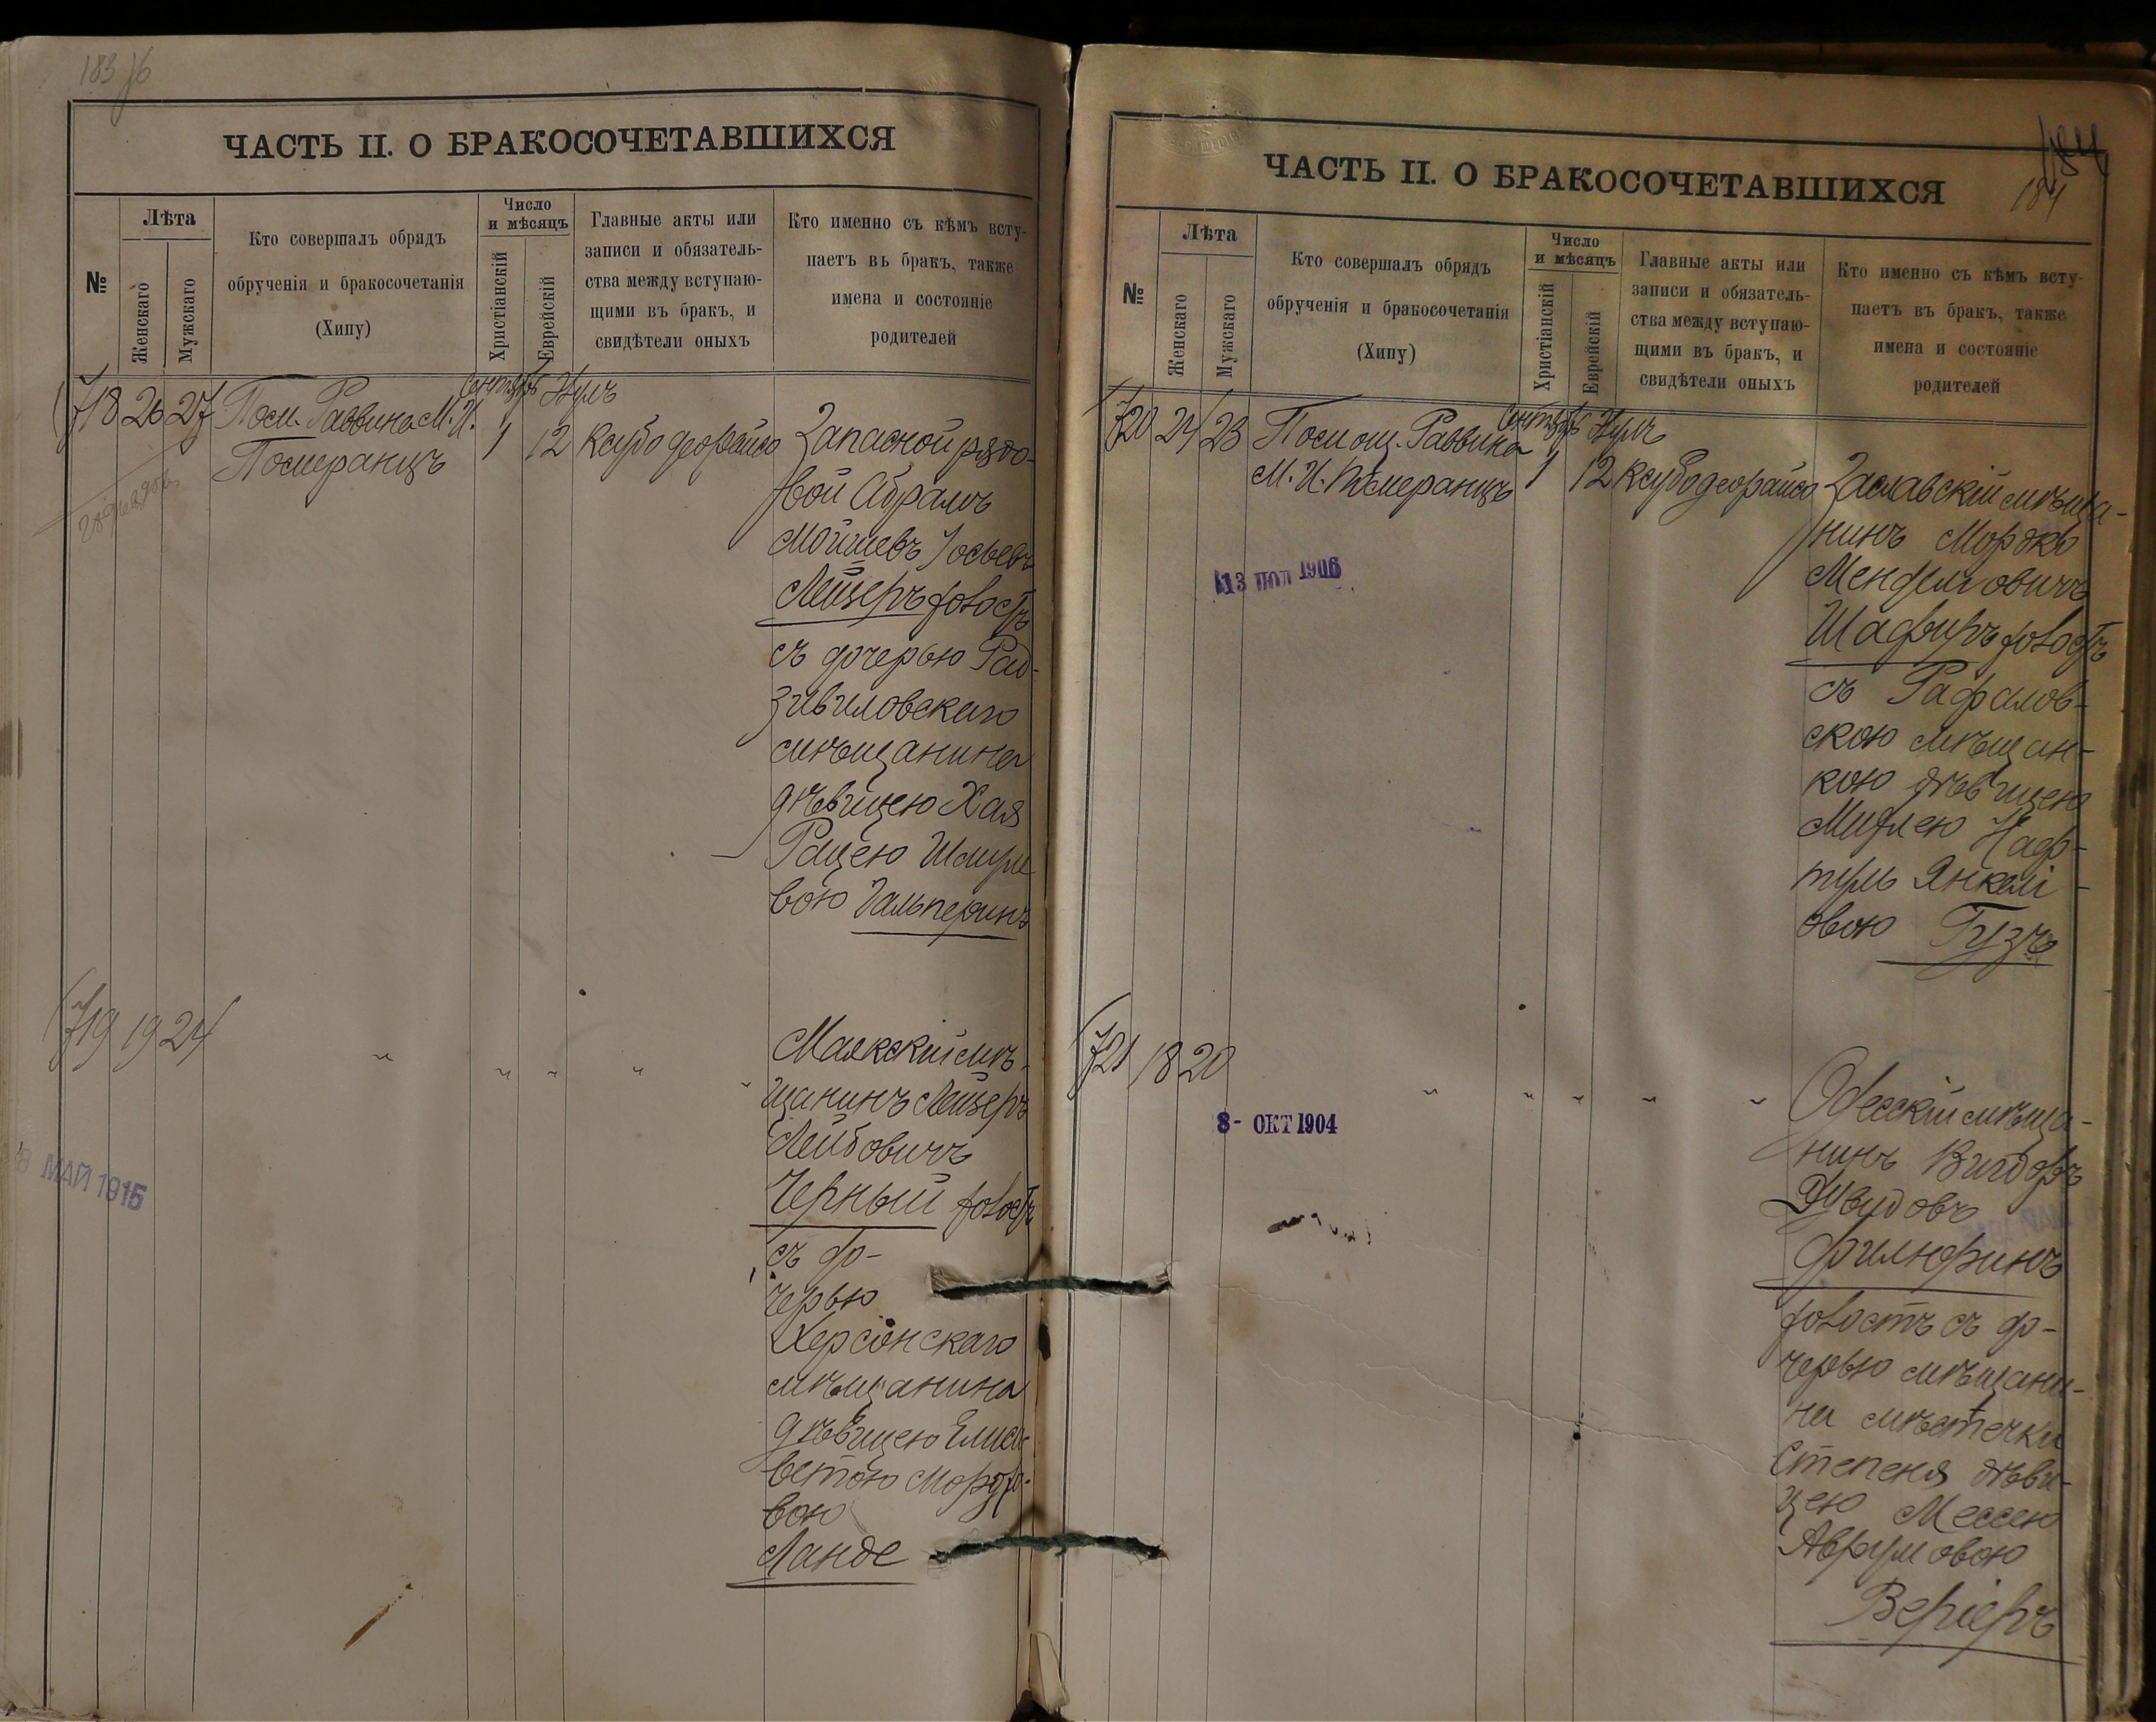 183
ЧАСТЬ II. О БРАКОСОЧЕТАВШИХСЯ
№
Лѣта
Женскаго
Мужскаго
Кто совершалъ обрядъ
обрученія и бракосочетанія
(Хипу)
Число
и мѣсяцъ
Христіанскій
Еврейскій
Главные акты или
записи и обязатель-
ства между вступаю-
щими въ бракъ, и
свидѣтели оныхъ
Кто именно съ кѣмъ всту-
паетъ въ бракъ, также
имена и состояніе
родителей
718 26 27 Пом. Раввина М. И.
Померанцъ
Сентябрь
1
Элулъ
12
Ксубо деорайсо
Запасной рядо-
вой Абрамъ
Мойшевъ Іосьевъ
Лейзеръ холостъ
съ дочерью Рад-
зивиловскаго
мѣщанина
дѣвицею Хая
Рацею Шмуле
вою Гальперинъ
719 19 24 " " " " "
Маякскій мѣ-
щанинъ Лейзеръ
Лейбовичъ
Черный холостъ
съ до-
черью
Херсонскаго
мѣщанина
дѣвицею Елиса
ветою Мордко-
вою
Ланде
8 МАЙ 1915
184
ЧАСТЬ II. О БРАКОСОЧЕТАВШИХСЯ
№
Лѣта
Женскаго
Мужскаго
Кто совершалъ обрядъ
обрученія и бракосочетанія
(Хипу)
Число
и мѣсяцъ
Христіанскій
Еврейскій
Главные акты или
записи и обязатель-
ства между вступаю-
щими въ бракъ, и
свидѣтели оныхъ
Кто именно съ кѣмъ всту-
паетъ въ бракъ, также
имена и состояніе
родителей
720 24 23 Помощ. Раввина
М. И. Померанцъ
Сентябрь
1
Элулъ
12
Ксубо деорайсо
Заславскій мѣща-
нинъ Мордко
Менделіовичъ
Шафиръ холостъ
съ Рафалов-
скою мѣщан-
кою дѣвицею
Миндлею Наф-
тулъ Янкелі-
овою Гузъ
13 ІЮЛ 1906
721 18 20 " " " " "
Одесскій мѣща-
нинъ Вигдоръ
Дувидовъ
холостъ съ до-
черью мѣщани-
на мѣстечка
Степеня дѣви-
цею Мессею
Аврумовою
8- ОКТ 1904